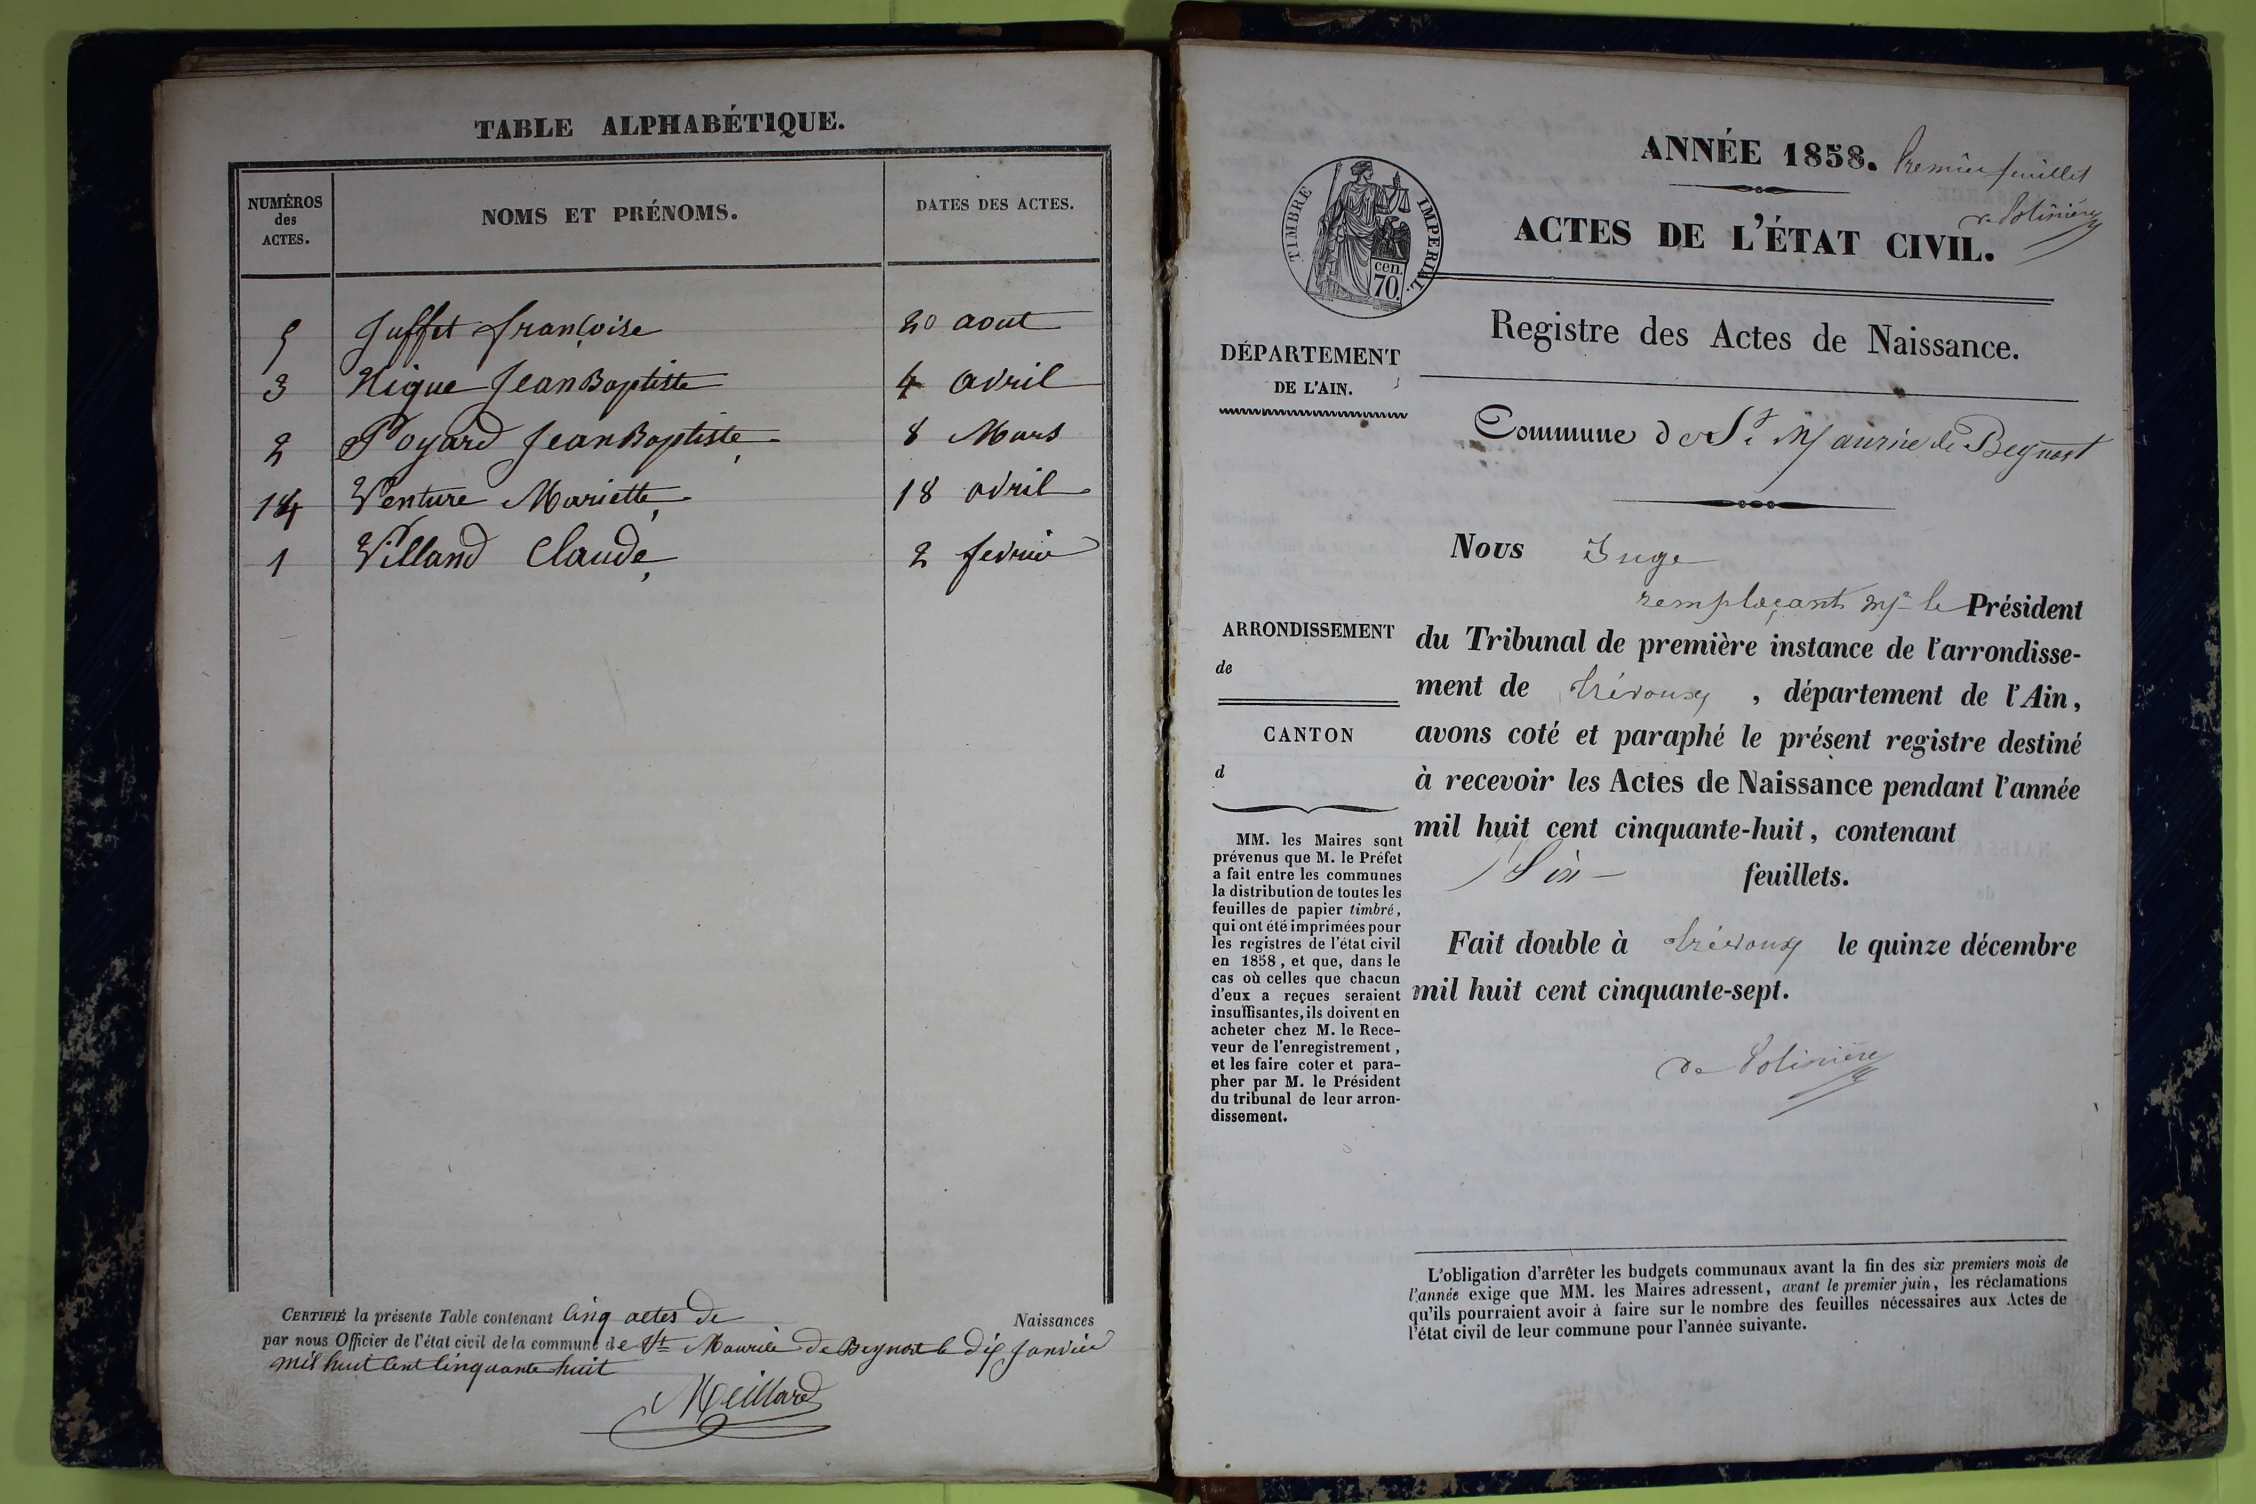 TABLE ALPHABÉTIQUE.
NUMÉROS
des
ACTES.
NOMS ET PRÉNOMS.
DATES DES ACTES.
5 Juffet françoise 20 aout
3 Nique Jean Baptiste 4 avril
2 Poyard Jean Baptiste 8 Mars
4 Venture Mariette 18 avril
1 Villand Claude 2 fevrier
CERTIFIÉ la présente Table contenant cinq actes de Naissances
par nous Officier de l'état civil de la commune de St Maurice de Beynost le dix Janvier
mil huit cent cinquante huit
Meillard
ANNÉE 1858.
Premier feuillet
de Polinière
ACTES DE L'ÉTAT CIVIL.
TIMBRE IMPERIAL.
cen.
70.
Registre des Actes de Naissance.
DÉPARTEMENT
DE L'AIN.
Commune de St Maurice de Beynost
Nous Juge
remplaçant Mr le Président
du Tribunal de première instance de l'arrondisse-
ment de Trévoux, département de l'Ain,
avons coté et paraphé le présent registre destiné
à recevoir les Actes de Naissance pendant l'année
mil huit cent cinquante-huit, contenant
Six feuillets.
Fait double à Trévoux le quinze décembre
mil huit cent cinquante-sept.
de Polinière
ARRONDISSEMENT
de
CANTON
d
MM. les Maires sont
prévenus que M. le Préfet
a fait entre les communes
la distribution de toutes les
feuilles de papier timbré,
qui ont été imprimées pour
les registres de l'état civil
en 1858, et que, dans le
cas où celles que chacun
d'eux a reçues seraient
insuffisantes, ils doivent en
acheter chez M. le Rece-
veur de l'enregistrement,
et les faire coter et para-
pher par M. le Président
du tribunal de leur arron-
dissement.
L'obligation d'arrêter les budgets communaux avant la fin des six premiers mois de
l'année exige que MM. les Maires adressent, avant le premier juin, les réclamations
qu'ils pourraient avoir à faire sur le nombre des feuilles nécessaires aux Actes de
l'état civil de leur commune pour l'année suivante.